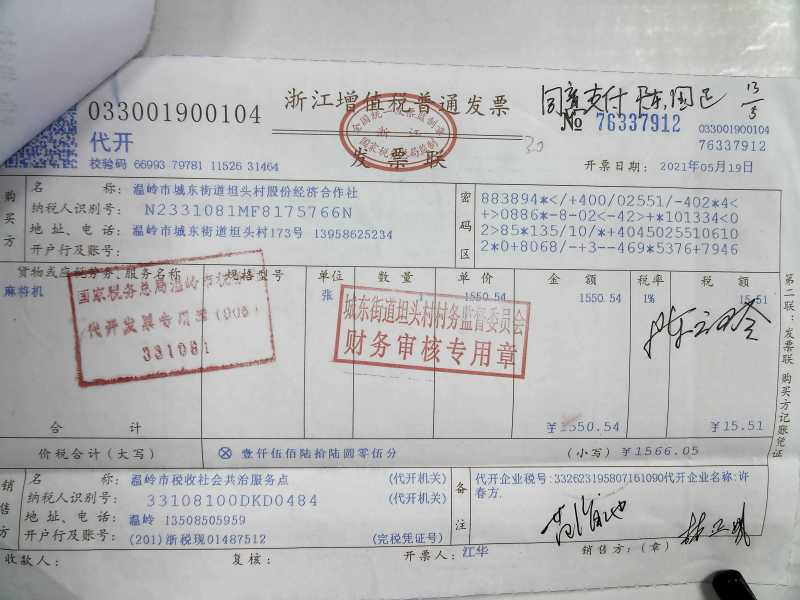 033001900104
浙江增值税普通发票
同意支付
13/5
№ 76337912
033001900104
76337912
代开
全国统一发票监制章
浙江
国家税务总局监制
发票联
30
校验码 66993 79781 11526 31464
开票日期: 2021年05月19日
购买方
名称: 温岭市城东街道坦头村股份经济合作社
纳税人识别号: N2331081MF8175766N
地址、电话: 温岭市城东街道坦头村173号 13958625234
开户行及账号:
密码区
883894*</+400/02551/-402*4<
+>0886*-8-02<-42>+*101334<0
2>85*135/10/*+4045025510610
2*0+8068/-+3--469*5376+7946
货物或应税劳务、服务名称 规格型号 单位 数量 单价 金额 税率 税额
麻将机 张 1550.54 1550.54 1% 15.51
国家税务总局温岭市税务
代开发票专用章
331081
城东街道坦头村村务监督委员会
财务审核专用章
合计 ¥1550.54 ¥15.51
价税合计(大写) ⊗壹仟伍佰陆拾陆圆零伍分 (小写)¥1566.05
销售方
名称: 温岭市税收社会共治服务点 (代开机关)
纳税人识别号: 33108100DKD0484 (代开机关)
地址、电话: 温岭 13508505959
开户行及账号: (201)浙税现01487512 (完税凭证号)
备注
代开企业税号:332623195807161090代开企业名称:许
春方.
收款人: 复核: 开票人: 江华 销售方:(章)
第二联:发票联 购买方记账凭证